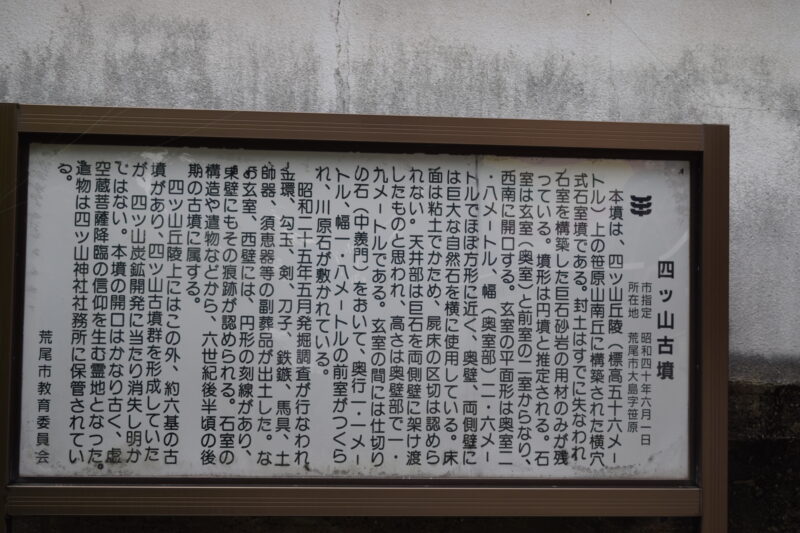 四ッ山古墳
市指定 昭和四十年六月一日
所在地 荒尾市大島字笹原
本墳は、四ツ山丘陵(標高五十六メー
トル)上の笹原山南丘に構築された横穴
式石室墳である。封土はすでに失なわれ
石室を構築した巨石砂岩の用材のみが残
っている。墳形は円墳と推定される。石
室は玄室(奥室)と前室の二室からなり、
西南に開口する。玄室の平面形は奥室二
・八メートル、幅(奥室部)二・六メー
トルでほぼ方形に近く、奥壁、両側壁に
は巨大な自然石を横に使用している。床
面は粘土でかため、屍床の区切は認めら
れない。天井部は巨石を両側壁に架け渡
したものと思われ、高さは奥壁部で一・
九メートルである。玄室の間には仕切り
の石(中羨門)をおいて、奥行一・一メー
トル、幅一・八メートルの前室がつくら
れ、川原石が敷かれている。
昭和二十五年五月発掘調査が行なわれ、
金環、勾玉、剣、刀子、鉄鏃、馬具、土
師器、須恵器等の副葬品が出土した。な
お玄室、西壁には、円形の刻線があり、
東壁にもその痕跡が認められる。石室の
構造や遺物などから、六世紀後半頃の後
期の古墳に属する。
四ツ山丘陵上にはこの外、約六基の古
墳があり、四ツ山古墳群を形成していた
が、四ツ山炭鉱開発に当たり消失し明か
ではない。本墳の開口はかなり古く、虚
空蔵菩薩降臨の信仰を生む霊地となった。
遺物は四ツ山神社社務所に保管されてい
る。
荒尾市教育委員会